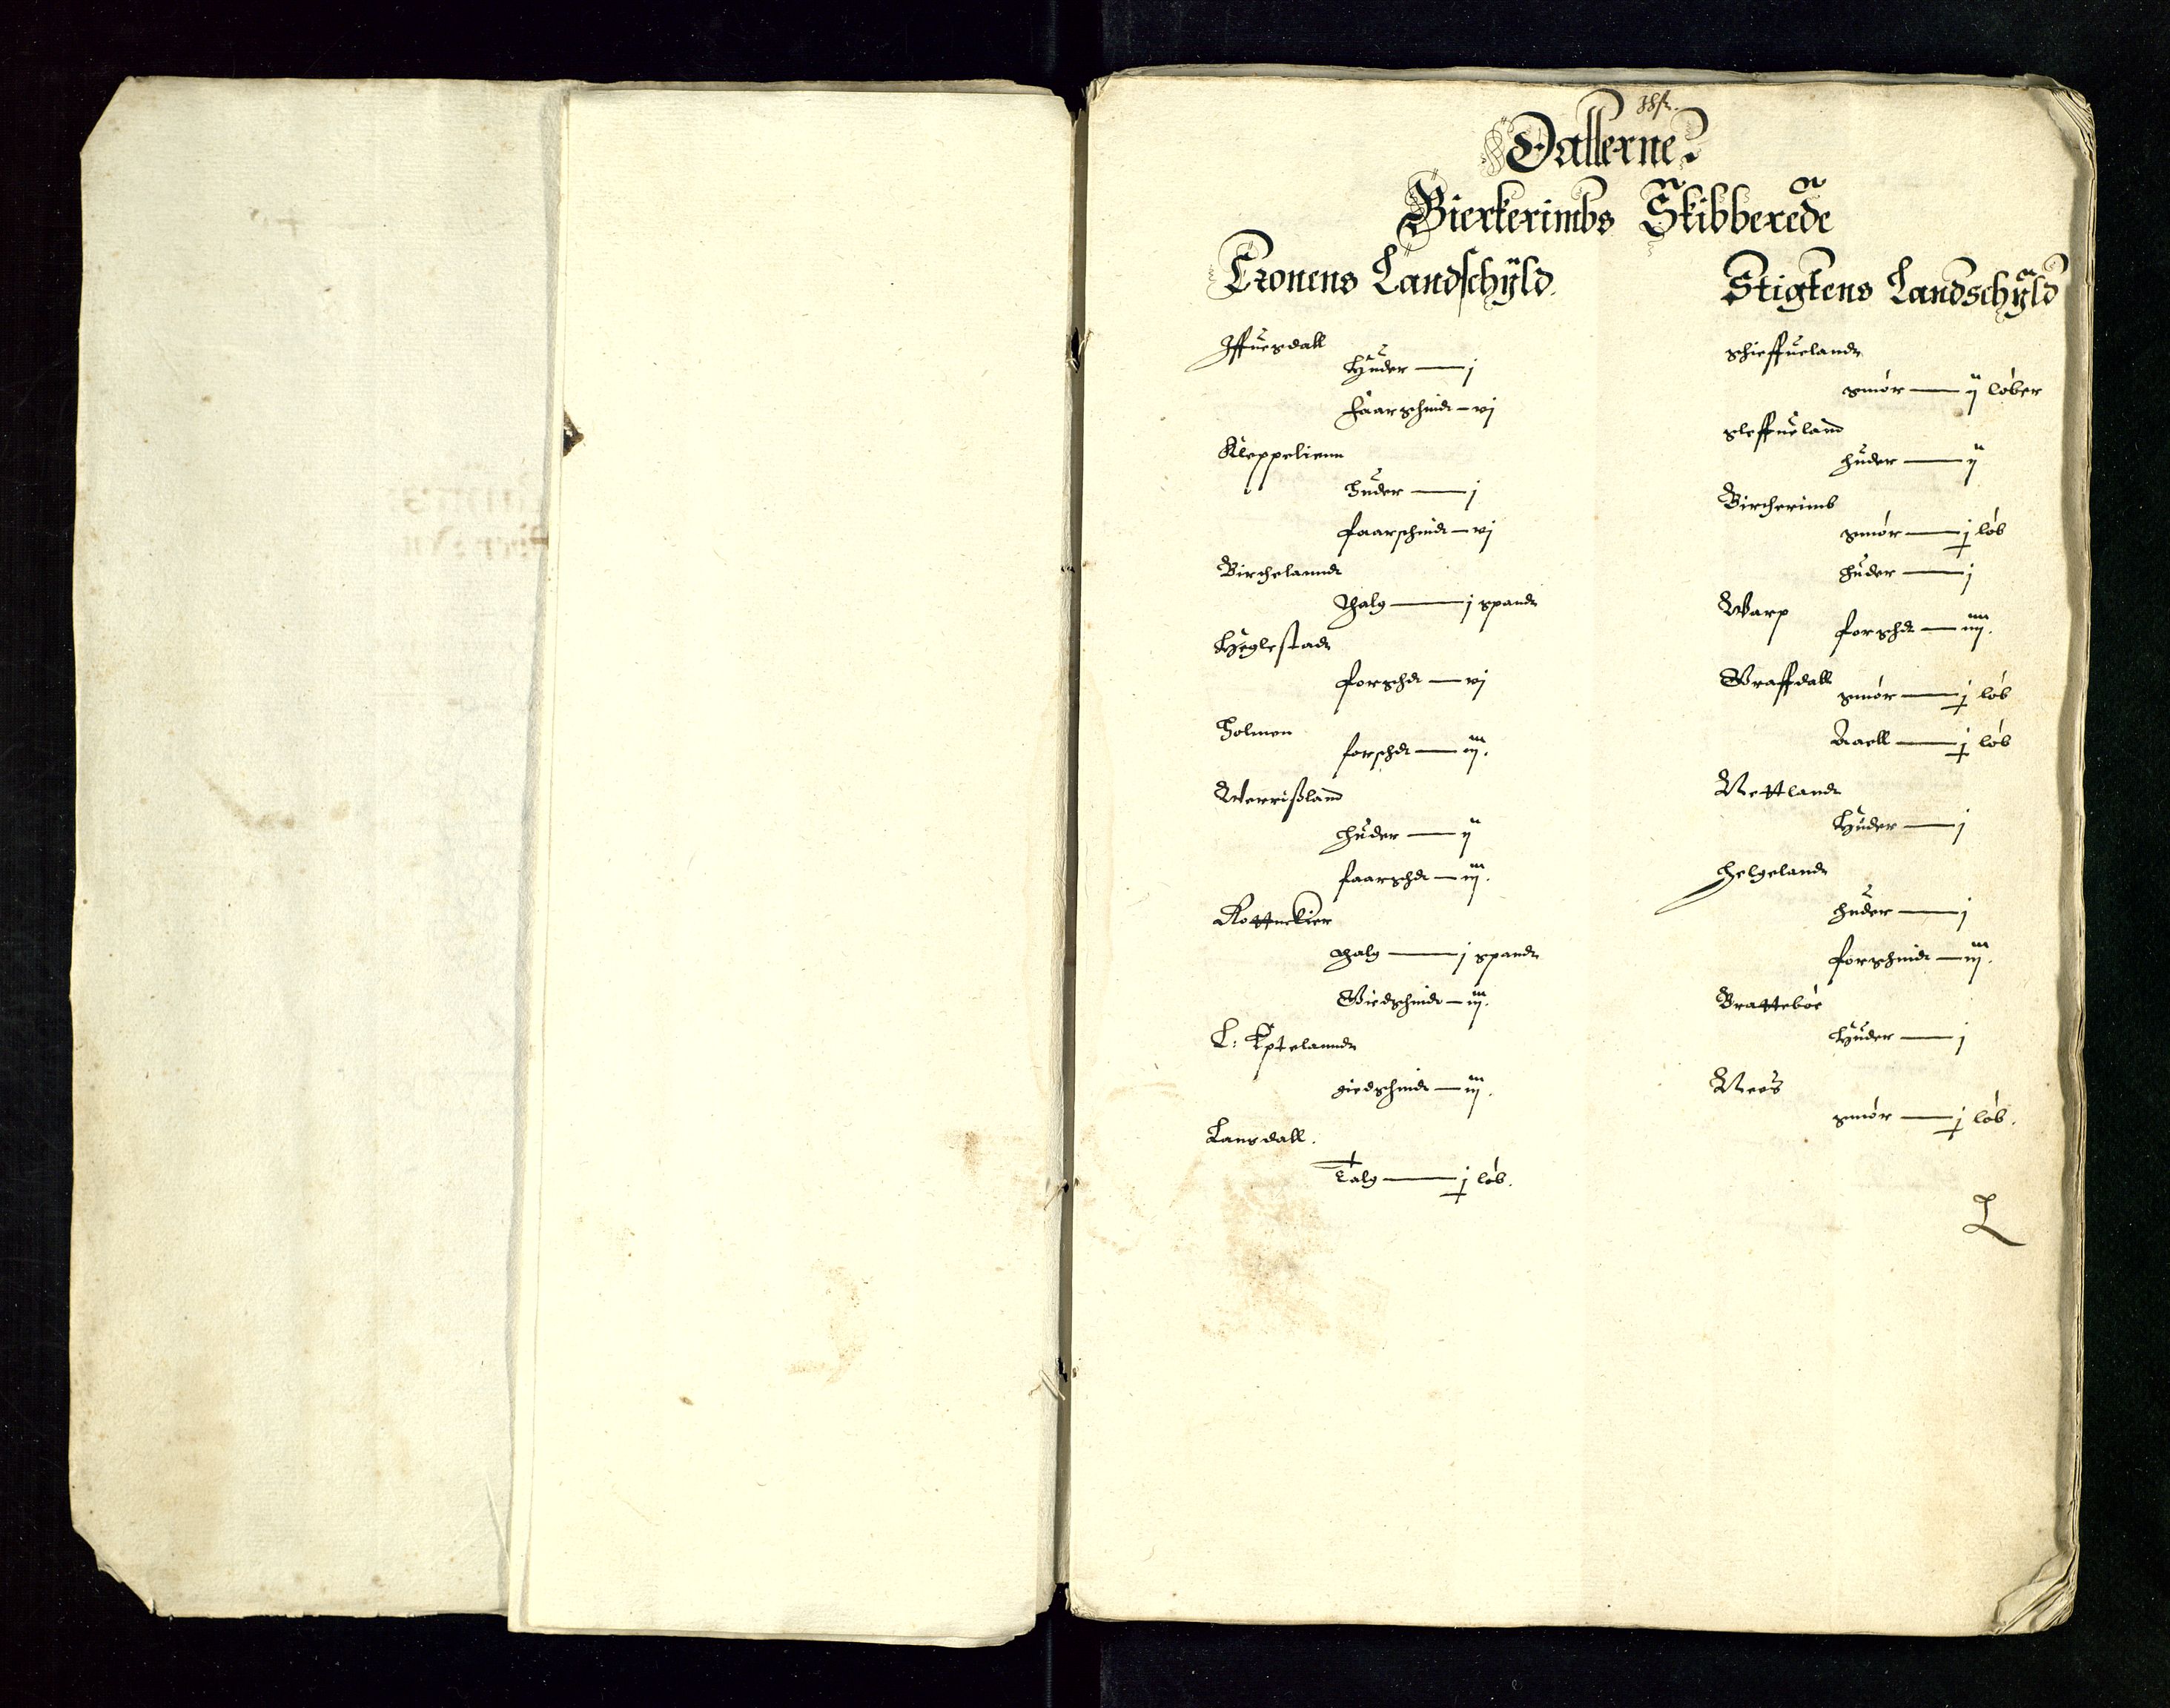 Dallerne
Bierkerimbs Skibberede
Cronens Landschÿld.
Iffuesdall
Huder — j
Faarschind — vj
Kleppelienn
Huder — j
faarschind — vj
Birchelannd
Thalg — j spand
Heglestad
forschd — vj
Holmen
forschd — iij.
Werrißland
huder — ij
faarschd — iij.
thalg — j spand
Giedschind — iij.
L: Eptelannd
giedschind — iij.
Langdall.
Talg — j løb.
Stigtens Landschÿld
schieffueland
smør — ij løber
sleffueland
huder — ij
Bircherimb
smør — j løb
huder — j
Warp
forschd — iiij.
Graffdall
smør — j løb
Kaell — j løb
Nettland
Huder — j
Helgeland
huder — j
forschind — iij.
Brattebøe
Huder — j
Nees
smør — j løb.
L